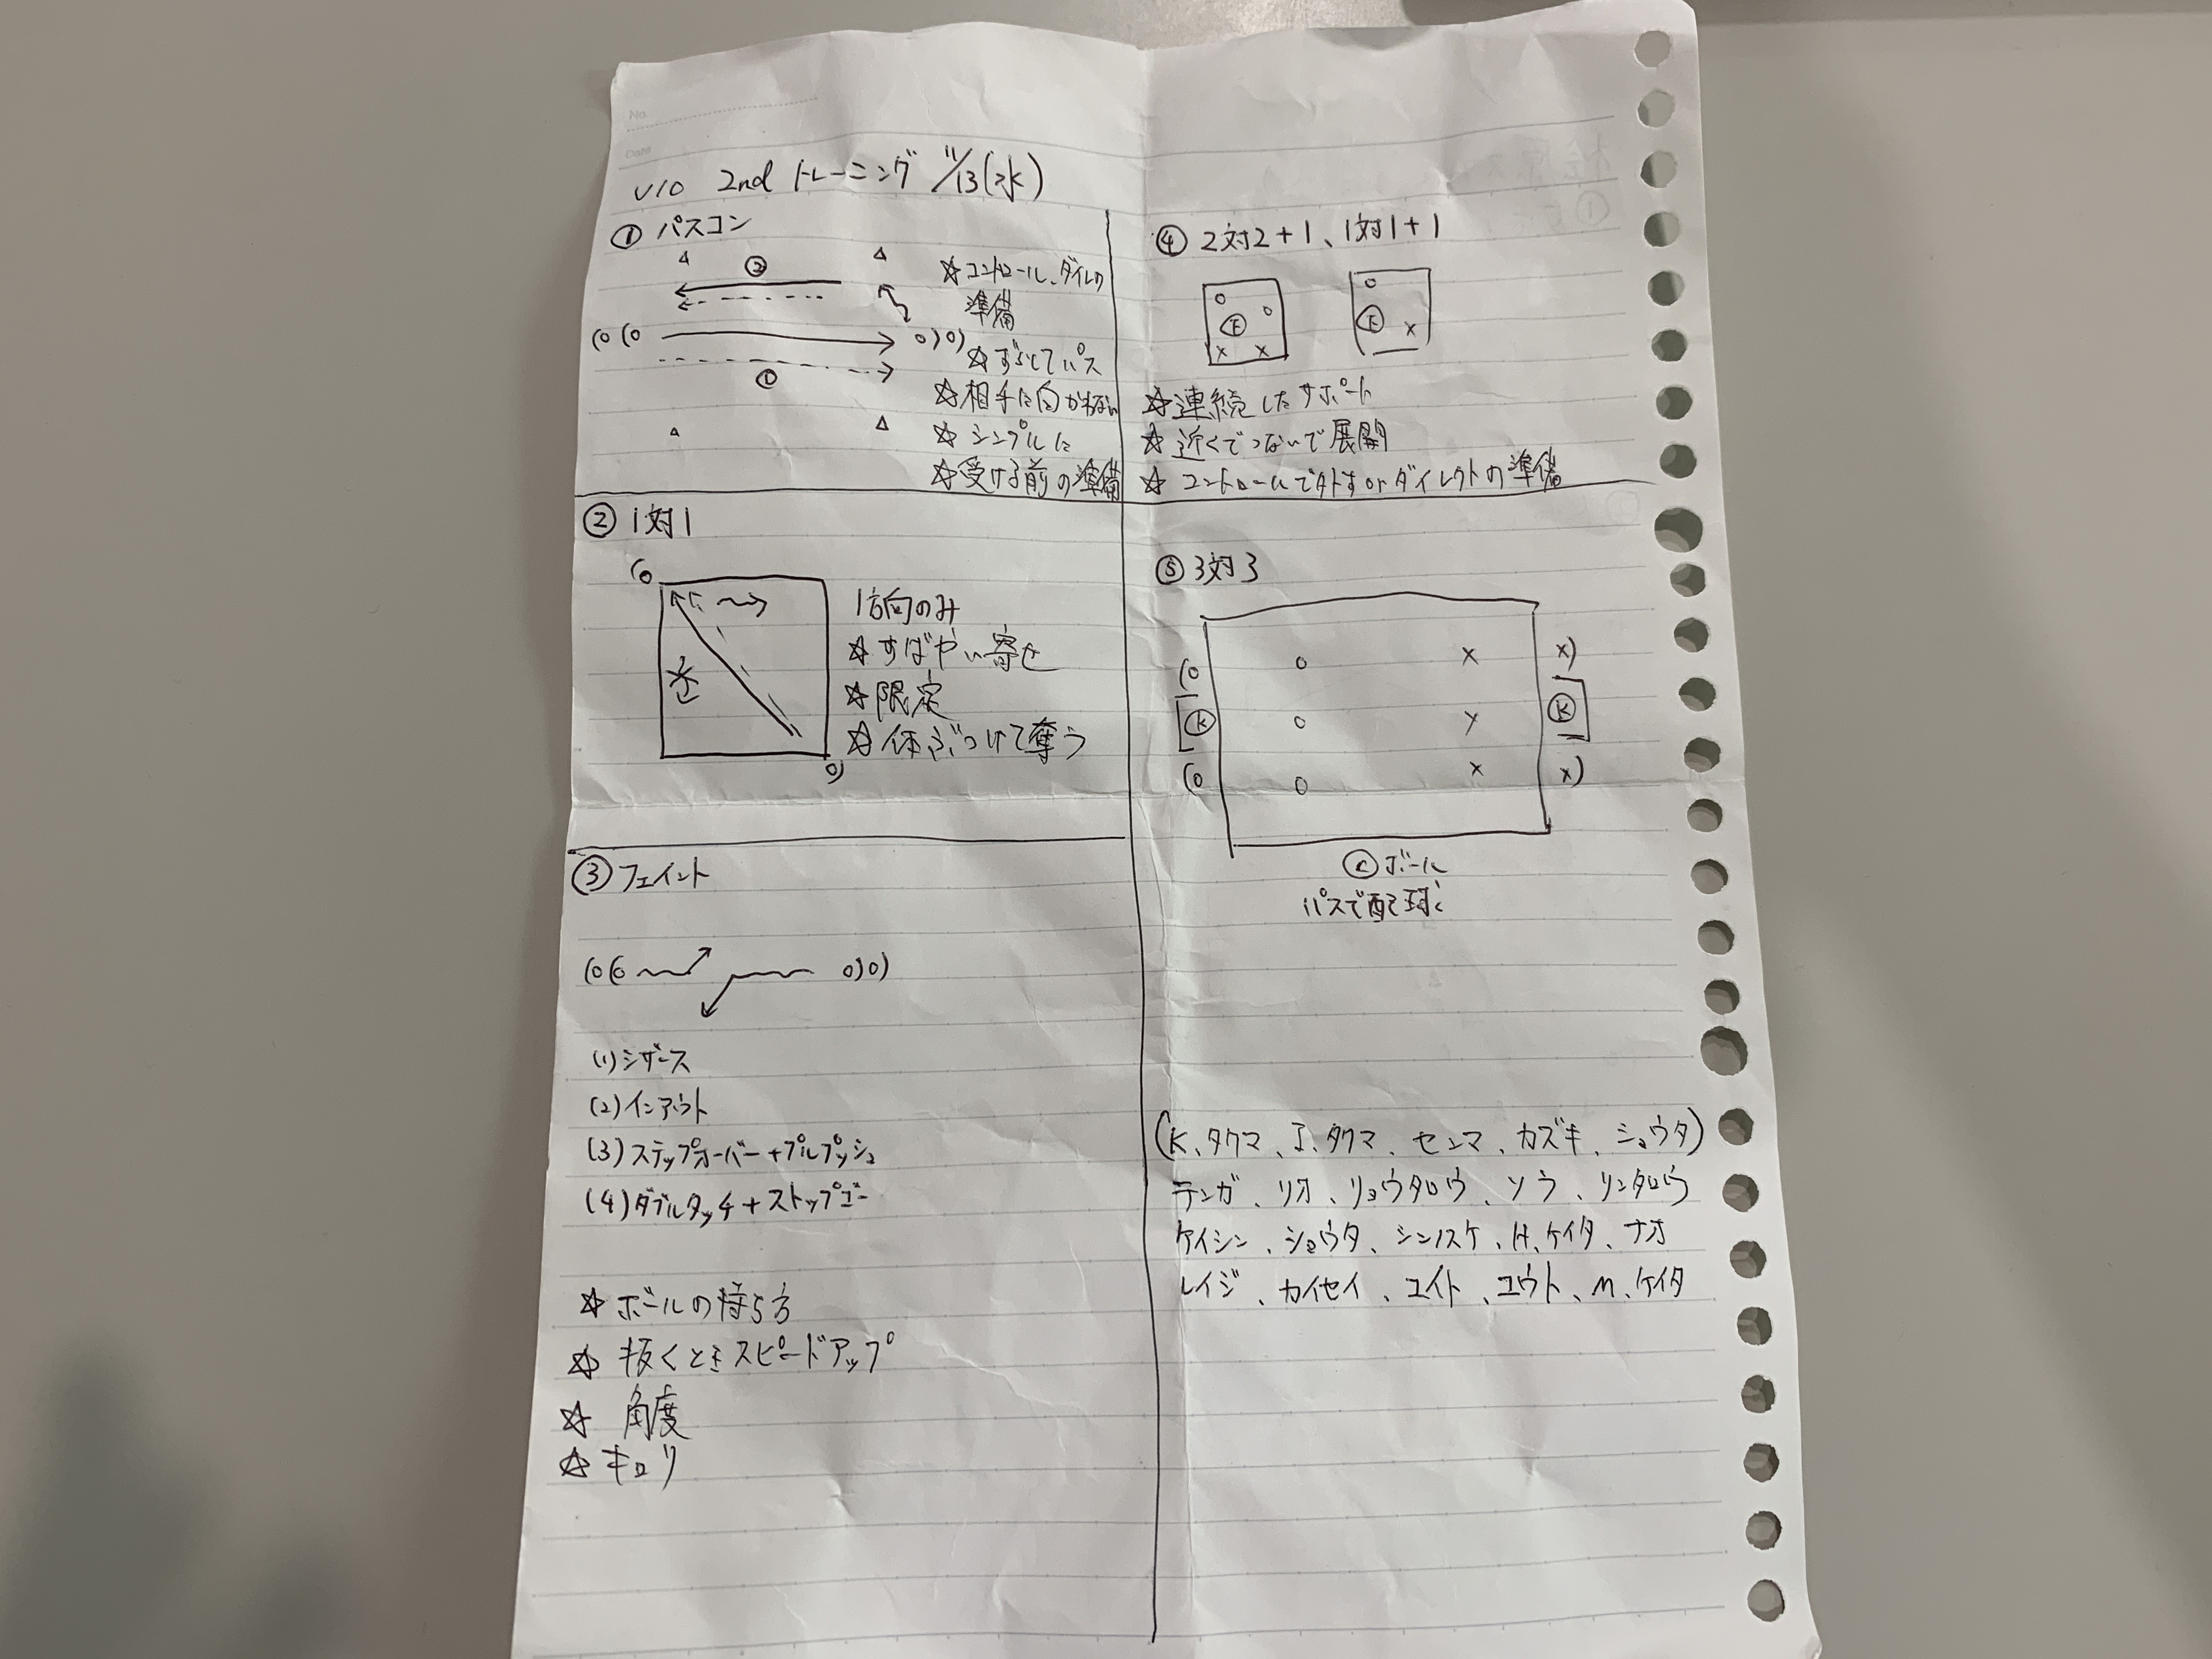 No.
Date
U10 2nd トレーニング 11/13(水)
① パスコン
②
①
☆コントロール、ダイレクト
準備
☆ずらしてパス
☆相手に向かわない
☆シンプルに
☆受ける前の準備
② 1対1
1方向のみ
☆すばやい寄せ
☆限定
☆体ぶつけて奪う
③フェイント
(1)シザース
(2)インアウト
(3)ステップオーバー+プルプッシュ
(4)ダブルタッチ+ストップゴー
☆ボールの持ち方
☆抜くときスピードアップ
☆角度
☆キョリ
④ 2対2+1、1対1+1
F
F
☆連続したサポート
☆近くでつないで展開
☆コントロールで外す or ダイレクトの準備
⑤3対3
K
K
Ⓒボール
パスで配球
(K、タクマ、I、タクマ、センマ、カズキ、ショウタ)
テンガ、リオ、リョウタロウ、ソラ、リンタロウ
ケイシン、ショウタ、シンノスケ、H、ケイタ、ナオ
レイジ、カイセイ、ユイト、ユウト、M、ケイタ